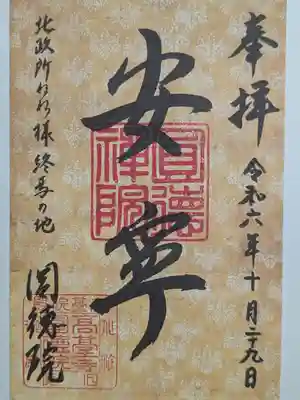 奉拝
令和六年十月二十九日
安寧
北政所ねね様終焉の地
圓徳院